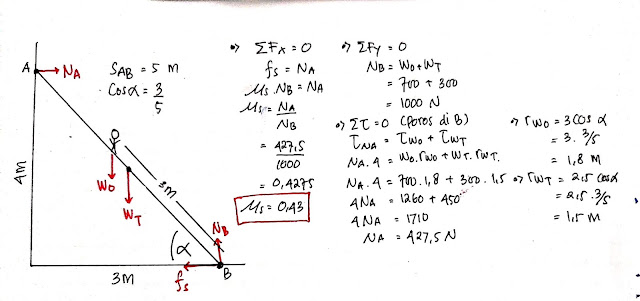 A
NA
SAB = 5 m
Cos α = 3/5
4M
Wo
WT
3m
NB
α
fs
B
3M
=> ΣFx = 0
fs = NA
μs . NB = NA
μs = NA/NB
= 427,5/1000
= 0,4275
μs = 0,43
=> ΣFy = 0
NB = Wo + WT
= 700 + 300
= 1000 N
=> Στ = 0 (poros di B)
τNA = τwo + τWT
NA . 4 = Wo . rwo + WT . rWT.
NA . 4 = 700 . 1,8 + 300 . 1,5
4NA = 1260 + 450
4NA = 1710
NA = 427,5 N
=> rwo = 3 cos α
= 3 . 3/5
= 1,8 m
=> rWT = 2,5 cos α
= 2,5 . 3/5
= 1,5 m